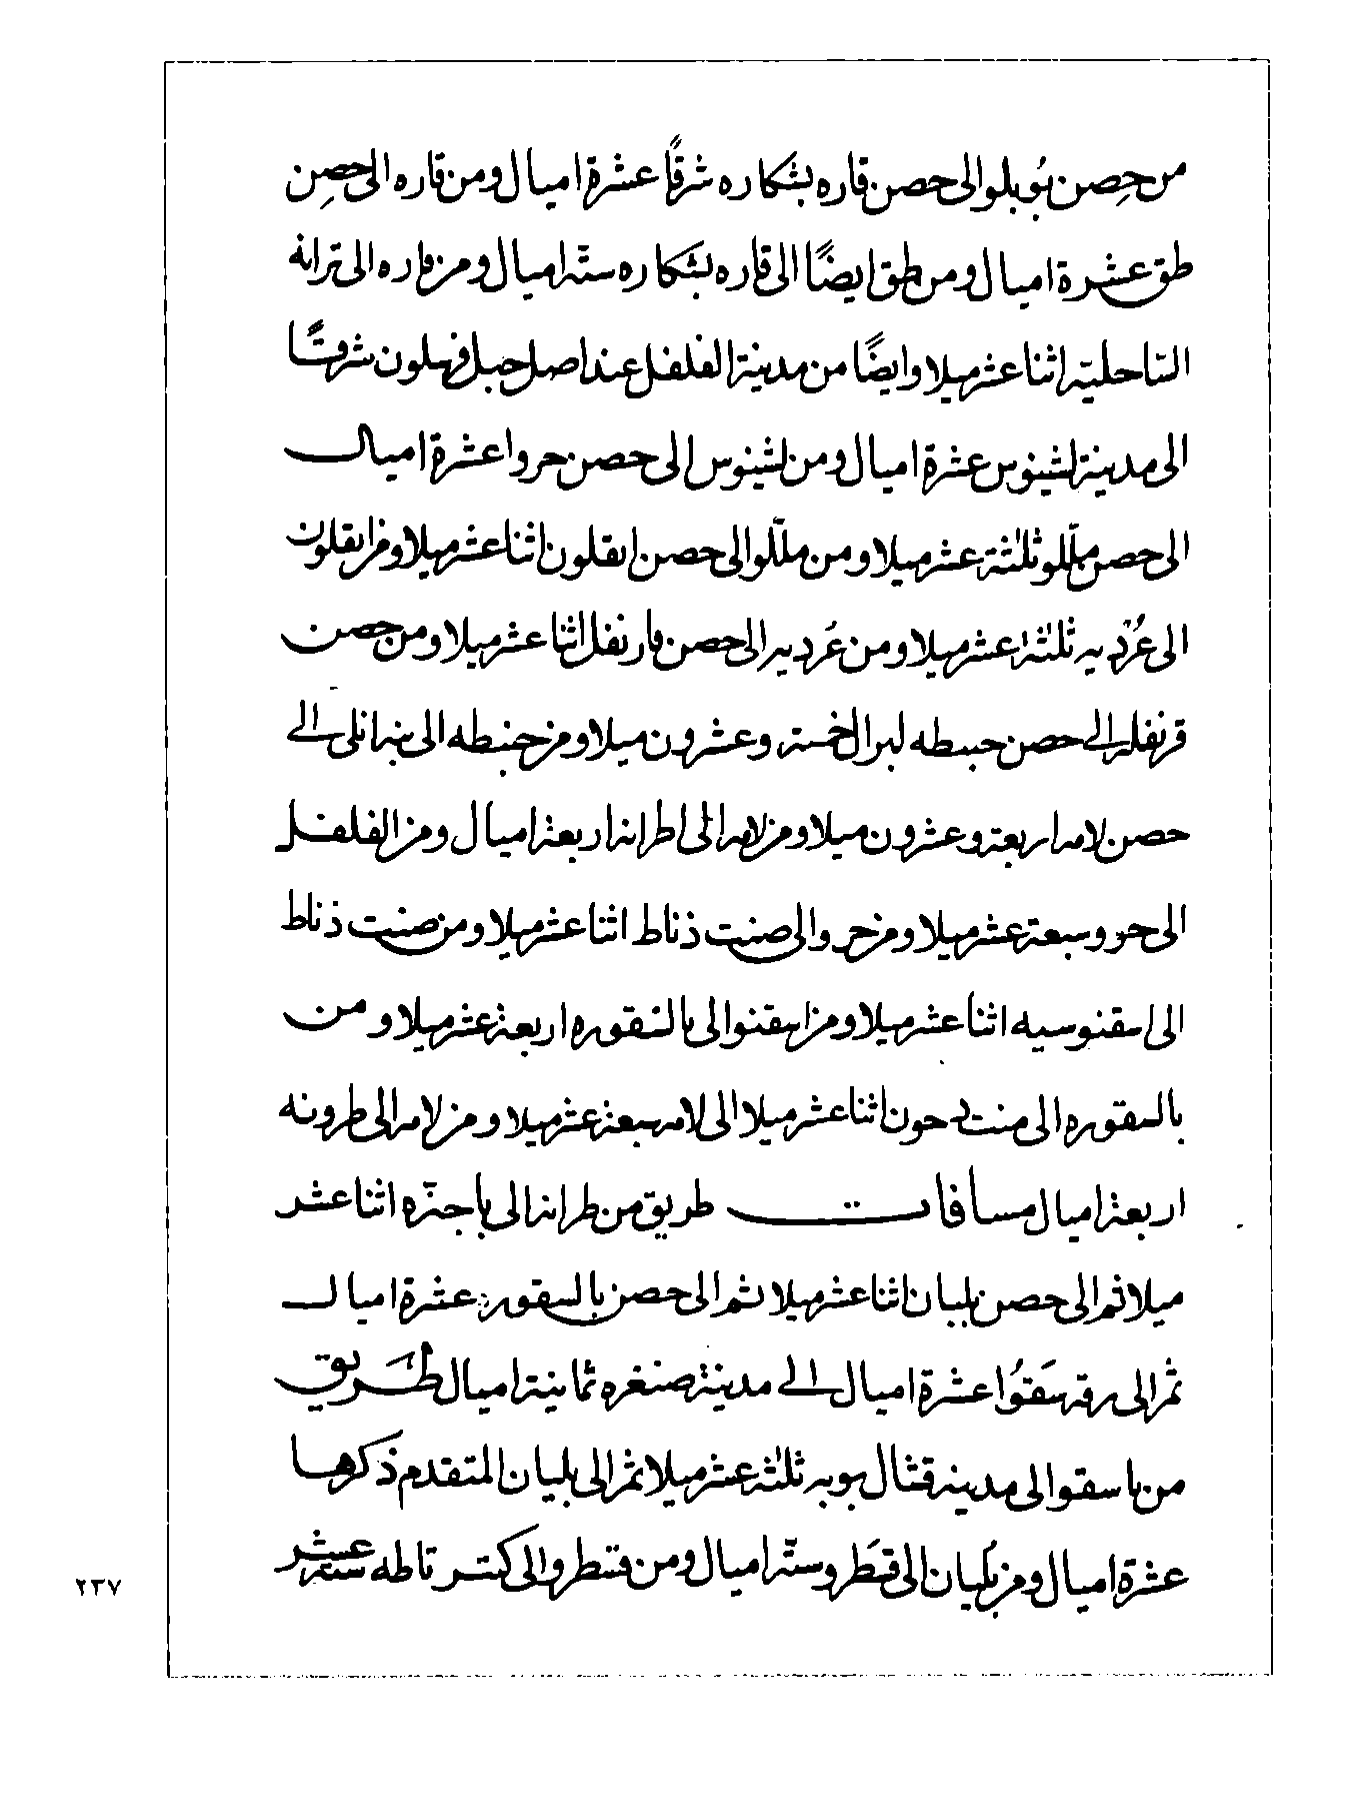 من حِصن بُوبلو الى حصن قاره بشكاره شرقًا عشرة اميال ومن قاره الى حصِن
طق عشرة اميال ومن طق ايضًا الى قاره بشكاره ستّة اميال ومن قاره الى ترانه
السّاحليّة اثنا عشر ميلا وايضًا من مدينة الفلفل عند اصل جبل فهلون شرقًا
الى مدينة لشينوس عشرة اميال ومن لشينوس الى حصن جروا عشرة اميال
الى حصن ملّلو ثلٰثة عشر ميلا ومن ملّلو الى حصن ابقلون اثنا عشر ميلا ومن ابقلون
الى عُرْديه ثلٰثة عشر ميلا ومن عَرديه الى حصن قارنفل اثنا عشر ميلا ومن حصن
قرنفل الى حصن حبيطه لبرال خمسة وعشرون ميلا ومن جنبطه الى الى
حصن لامه اربعة وعشرون ميلا ومن لامه الى اطرانه اربعة اميال ومن الفلفل
الى جروا سبعة عشر ميلا ومن جروا الى صنت ذناط اثنا عشر ميلا ومن صنت ذناط
الى اسقنوسيه اثنا عشر ميلا ومن اسقنوا الى بالسقوره اربعة عشر ميلا ومن
بالسقوره الى منت دحون اثنا عشر ميلا الى لامه سبعة عشر ميلا ومن لامه الى طرونه
اربعة اميال مسافات طريق من طرانه الى باجنّه اثنا عشر
ميلا ثم الى حصن بلبان اثنا عشر ميلا ثم الى حصن بالسقوره عشرة اميال
ثم الى عشرة اميال الى مدينة صنغره ثمانية اميال طَريق
من باسقو الى مدينه قتال بوبه ثلٰثة عشر ميلا ثم الى بلبان المتقدم ذكرها
عشرة اميال ومن بلبان الى قنَطرو ستّة اميال ومن قنطرو الى كنتر تاطه ستة عشر
٢٣٧